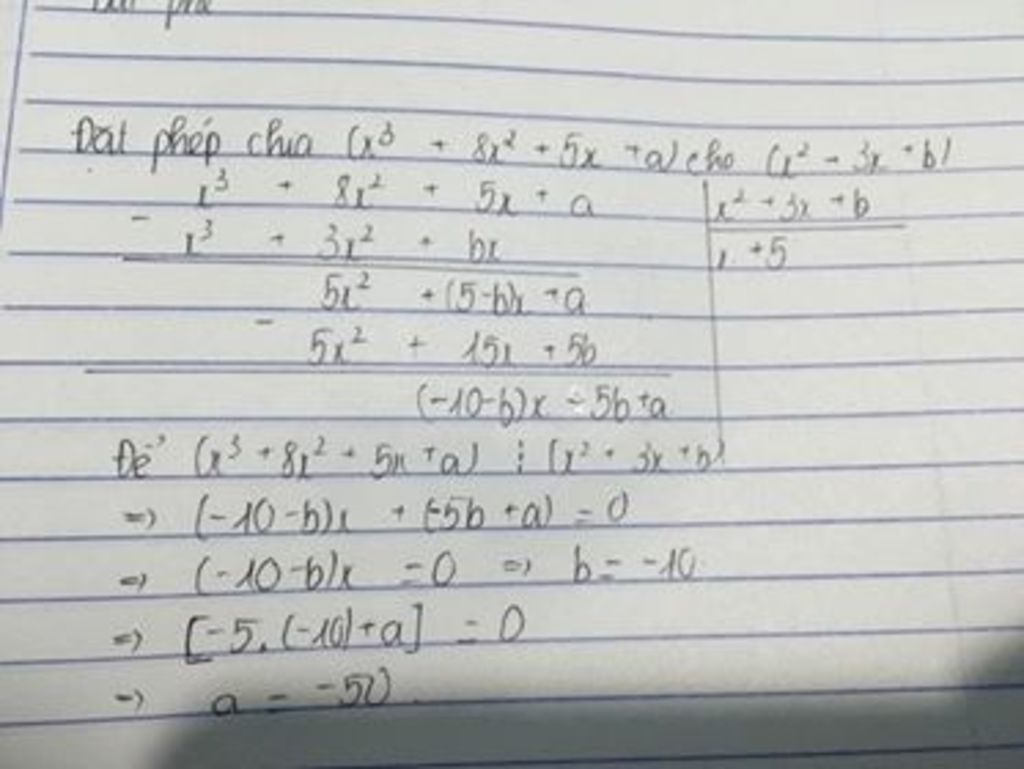 Đặt phép chia (x³ + 8x² + 5x + a) cho (x² + 3x + b)
x³ + 8x² + 5x + a | x² + 3x + b
- x³ + 3x² + bx | x + 5
5x² + (5-b)x + a
- 5x² + 15x + 5b
(-10-b)x - 5b + a
Để (x³ + 8x² + 5x + a) ⋮ (x² + 3x + b)
=> (-10-b)x + (-5b + a) = 0
=> (-10-b)x = 0 => b = -10
=> [-5.(-10) + a] = 0
=> a = -50